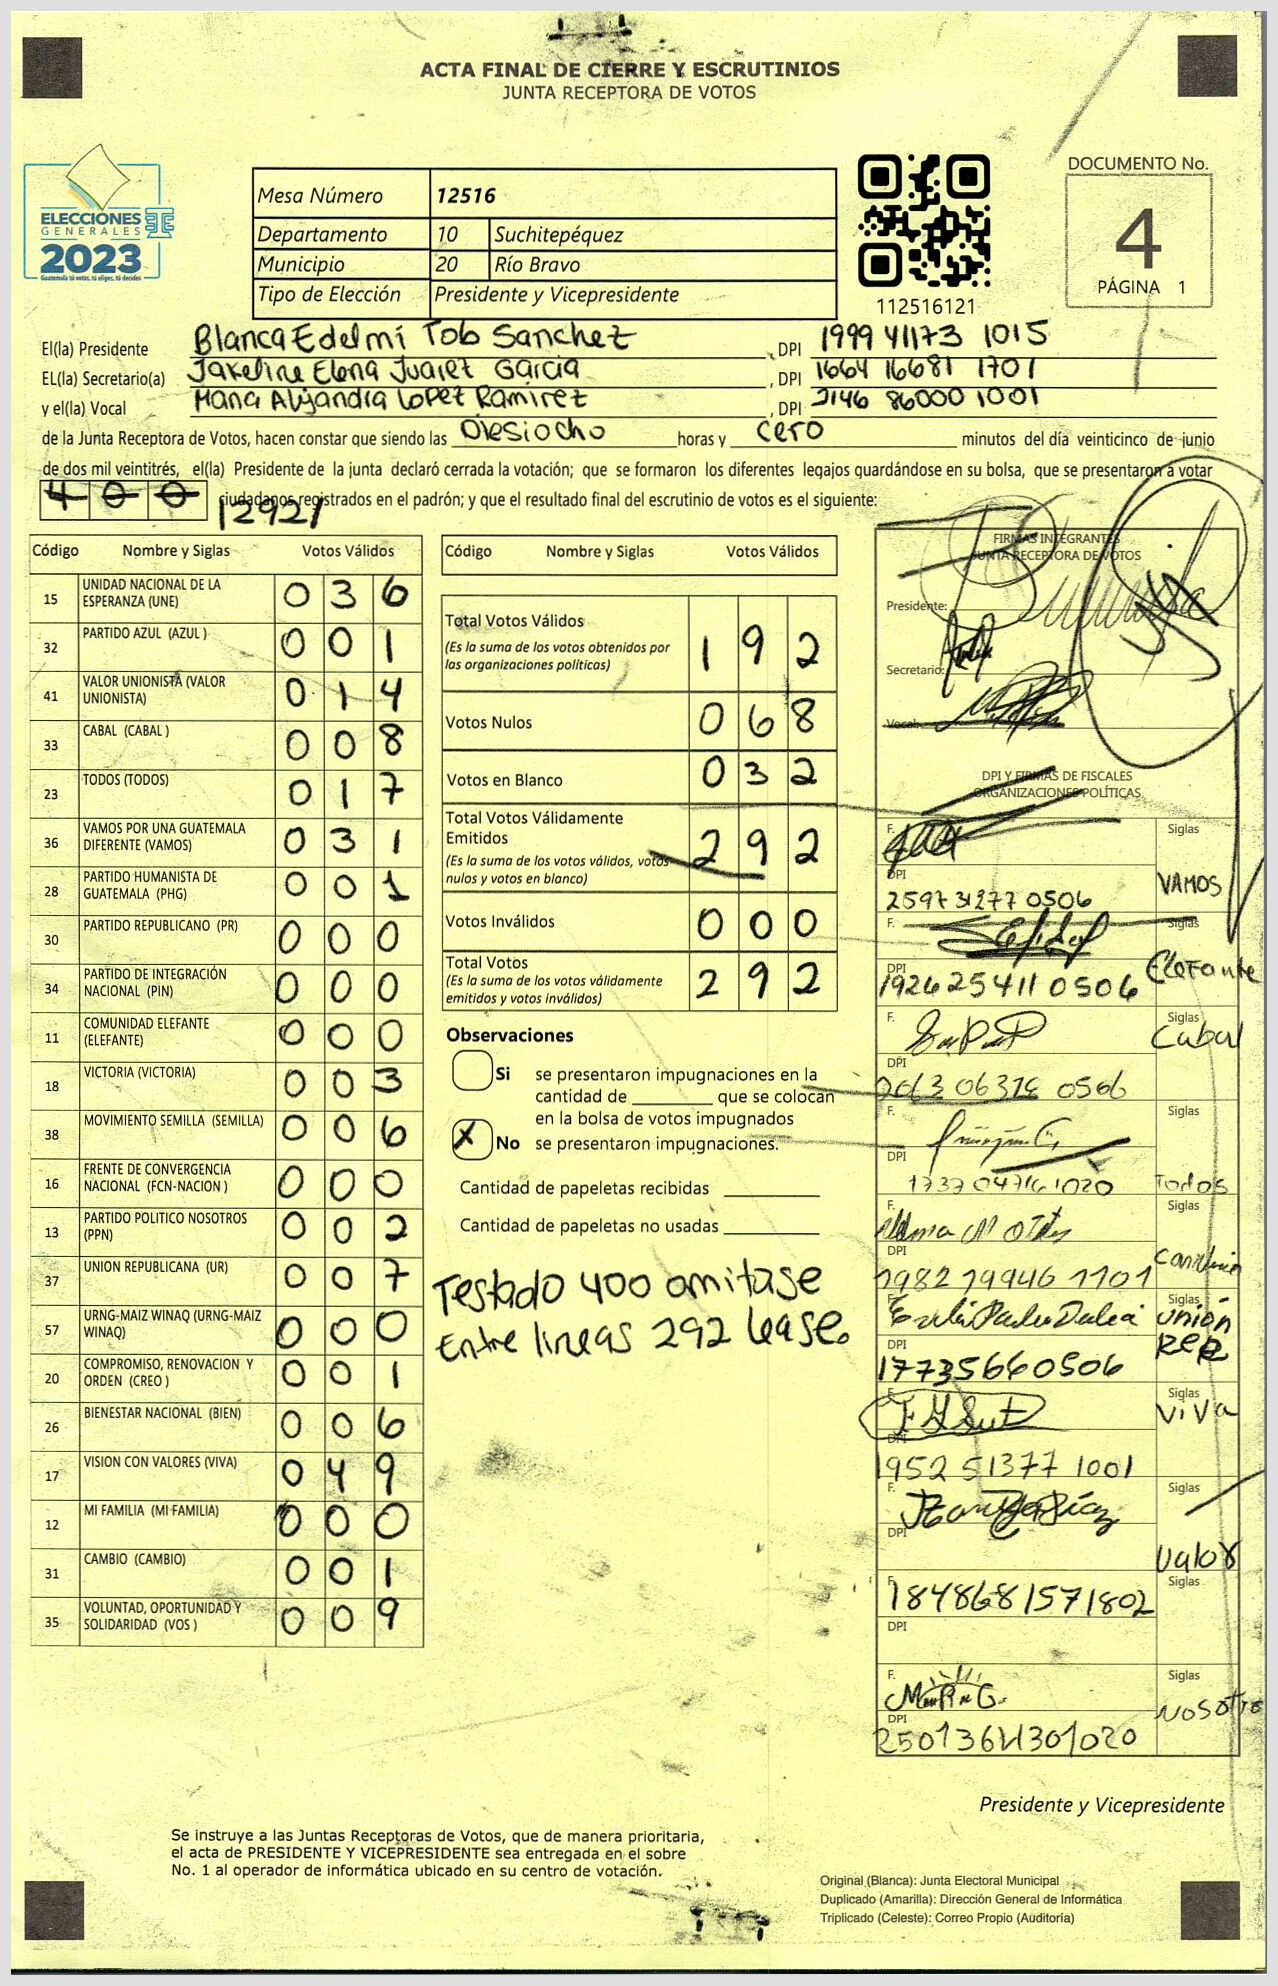 ACTA FINAL DE CIERRE Y ESCRUTINIOS
JUNTA RECEPTORA DE VOTOS
ELECCIONES
GENERALES
2023
Guatemala tú votas, tú eliges, tú decides
Mesa Número 12516
Departamento 10 Suchitepéquez
Municipio 20 Río Bravo
Tipo de Elección Presidente y Vicepresidente
112516121
DOCUMENTO No.
4
PÁGINA 1
El(la) Presidente Blanca Edelmi Tob Sanchez , DPI 1999 41173 1015
EL(la) Secretario(a) Jakeline Elena Juarez Garcia , DPI 1664 16681 1701
y el(la) Vocal Maria Alejandra Lopez Ramirez , DPI 2146 86000 1001
de la Junta Receptora de Votos, hacen constar que siendo las Diesiocho horas y cero minutos del día veinticinco de junio
de dos mil veintitrés, el(la) Presidente de la junta declaró cerrada la votación; que se formaron los diferentes legajos guardándose en su bolsa, que se presentaron a votar
400 ciudadanos registrados en el padrón; y que el resultado final del escrutinio de votos es el siguiente:
/292/
Código Nombre y Siglas Votos Válidos
15 UNIDAD NACIONAL DE LA ESPERANZA (UNE) 0 3 6
32 PARTIDO AZUL (AZUL ) 0 0 1
41 VALOR UNIONISTA (VALOR UNIONISTA) 0 1 4
33 CABAL (CABAL ) 0 0 8
23 TODOS (TODOS) 0 1 7
36 VAMOS POR UNA GUATEMALA DIFERENTE (VAMOS) 0 3 1
28 PARTIDO HUMANISTA DE GUATEMALA (PHG) 0 0 1
30 PARTIDO REPUBLICANO (PR) 0 0 0
34 PARTIDO DE INTEGRACIÓN NACIONAL (PIN) 0 0 0
11 COMUNIDAD ELEFANTE (ELEFANTE) 0 0 0
18 VICTORIA (VICTORIA) 0 0 3
38 MOVIMIENTO SEMILLA (SEMILLA) 0 0 6
16 FRENTE DE CONVERGENCIA NACIONAL (FCN-NACION ) 0 0 0
13 PARTIDO POLITICO NOSOTROS (PPN) 0 0 2
37 UNION REPUBLICANA (UR) 0 0 7
57 URNG-MAIZ WINAQ (URNG-MAIZ WINAQ) 0 0 0
20 COMPROMISO, RENOVACION Y ORDEN (CREO ) 0 0 1
26 BIENESTAR NACIONAL (BIEN) 0 0 6
17 VISION CON VALORES (VIVA) 0 4 9
12 MI FAMILIA (MI FAMILIA) 0 0 0
31 CAMBIO (CAMBIO) 0 0 1
35 VOLUNTAD, OPORTUNIDAD Y SOLIDARIDAD (VOS ) 0 0 9
Código Nombre y Siglas Votos Válidos
Total Votos Válidos 1 9 2
(Es la suma de los votos obtenidos por
las organizaciones políticas)
Votos Nulos 0 6 8
Votos en Blanco 0 3 2
Total Votos Válidamente
Emitidos 2 9 2
(Es la suma de los votos válidos, votos
nulos y votos en blanco)
Votos Inválidos 0 0 0
Total Votos 2 9 2
(Es la suma de los votos válidamente
emitidos y votos inválidos)
Observaciones
Si se presentaron impugnaciones en la
cantidad de ________ que se colocan
en la bolsa de votos impugnados
X No se presentaron impugnaciones.
Cantidad de papeletas recibidas
Cantidad de papeletas no usadas
Testado 400 omitase
Entre lineas 292 Lease.
FIRMAS INTEGRANTES
JUNTA RECEPTORA DE VOTOS
Presidente:
Secretario:
Vocal:
DPI Y FIRMAS DE FISCALES
ORGANIZACIONES POLÍTICAS
F. Siglas
DPI VAMOS
2597 31277 0506
F. Siglas
DPI Elefante
1926 25411 0506
F. Siglas
Cabal
DPI
F. Siglas
DPI
Todos
F. Siglas
DPI
1982 19946 1101
Siglas
Union
Rep
DPI
17735660506
F. Siglas
VIVA
DPI
1952 51377 1001
F. Siglas
DPI
Valor
F. Siglas
1848681571802
DPI
F. Siglas
DPI Nosotro
Presidente y Vicepresidente
Se instruye a las Juntas Receptoras de Votos, que de manera prioritaria,
el acta de PRESIDENTE Y VICEPRESIDENTE sea entregada en el sobre
No. 1 al operador de informática ubicado en su centro de votación.
Original (Blanca): Junta Electoral Municipal
Duplicado (Amarilla): Dirección General de Informática
Triplicado (Celeste): Correo Propio (Auditoría)